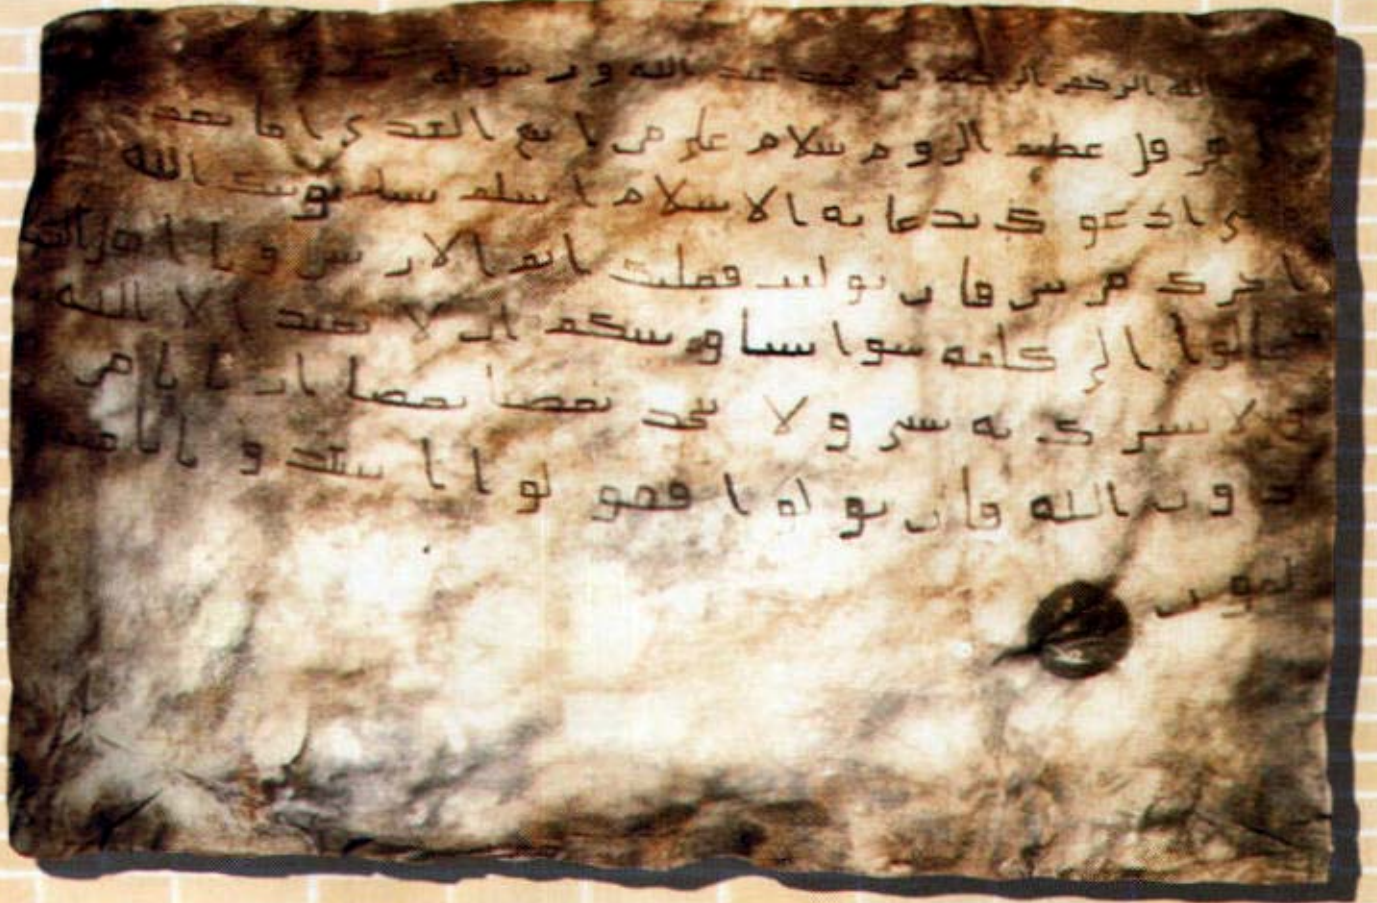 الله الرحمن الرحيم من محمد عبد الله ورسوله
هرقل عظيم الروم سلام على من اتبع الهدى اما بعد
فاني ادعوك بدعاية الاسلام اسلم تسلم يوتك الله
اجرك مرتين فان توليت فعليك اثم الاريسين ويا اهل الكتب
تعالوا الى كلمة سوا بيننا وبينكم ان لا نعبد الا الله
ولا نشرك به شي ولا يتخذ بعضنا بعضا اربابا من
دون الله فان تولوا فقولوا اشهدوا بانا مس
لمون